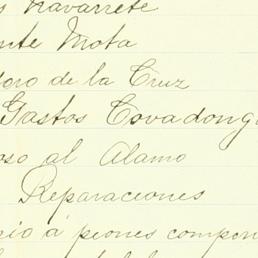 s Navarrete
nte Mota
doro de la Cruz
Gastos Covadong
oso al Alamo
Reparaciones
rio á peones compon